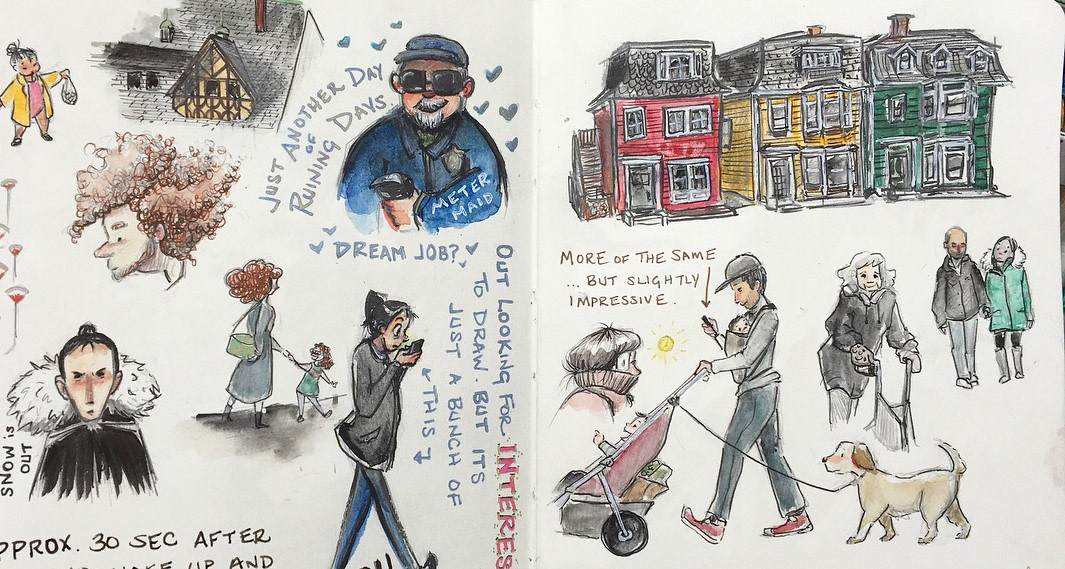 JUST ANOTHER DAY
OF
RUINING DAYS.
METER
MAID
DREAM JOB?
OUT LOOKING FOR INTERES
TO DRAW. BUT ITS
JUST A BUNCH OF
THIS
SNOW is
OUT
PPROX. 30 SEC AFTER
UP AND
MORE OF THE SAME
... BUT SLIGHTLY
IMPRESSIVE.